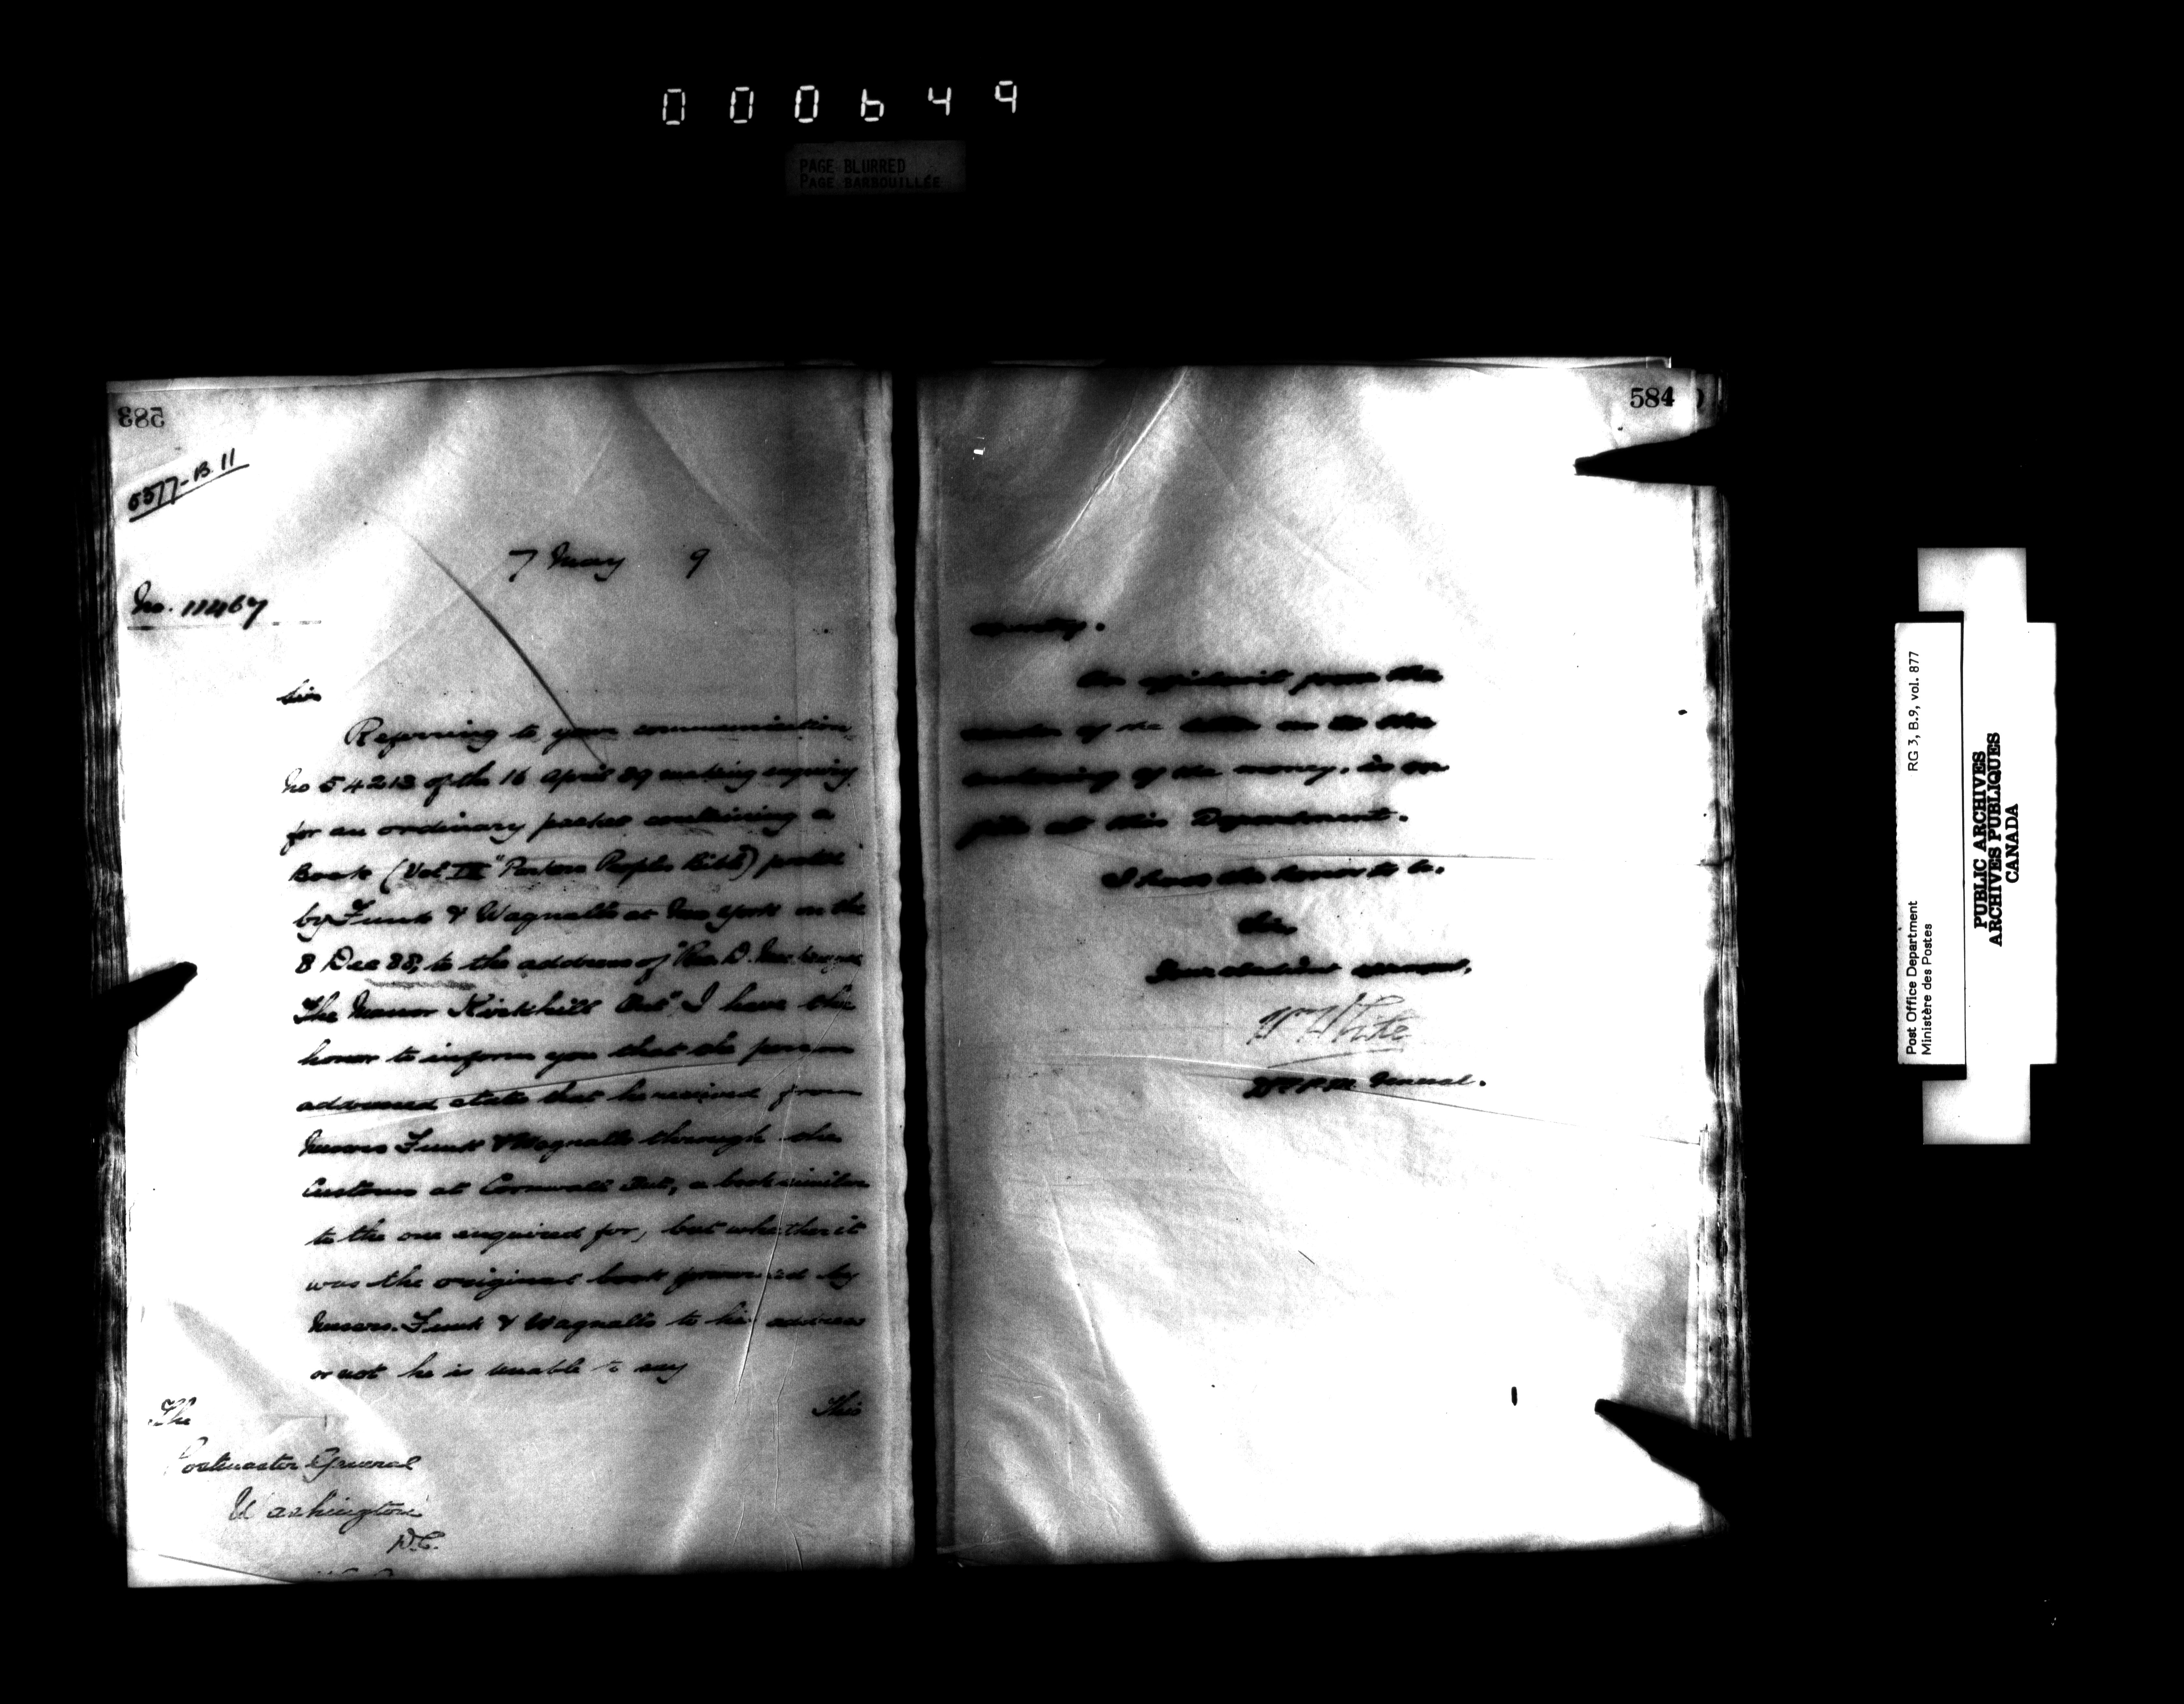 000649
PAGE BLURRED
PAGE BARBOUILLÉE
583
5577-B.11
7 May 9
No. 11467
Sir
Referring to your communication
No 54213 of the 16 April 89 making enquiry
for an ordinary packet containing a
Book (Vol IV "Parkers Peoples Bible") posted
by Funk & Wagnalls at New York on the
8 Dec 88, to the address of "Rev. D.
The Manse Kirkhill Ont", I have the
honor to inform you that the person
addressed states that he received from
Messrs Funk & Wagnalls through the
Customs at Cornwall Ont, a book similar
to the one enquired for, but whether it
was the original book forwarded by
Messrs. Funk & Wagnalls to his address
or not he is unable to say
This
The
Postmaster General
Washington
D.C.
584
country.
An affidavit from the
sender of the as to the
of the money, is on
file at this Department.
I have the honor to be,
Sir,
Your obedient servant,
Wm White
D. P. M. General.
Post Office Department
Ministère des Postes
RG 3, B.9, vol. 877
PUBLIC ARCHIVES
ARCHIVES PUBLIQUES
CANADA